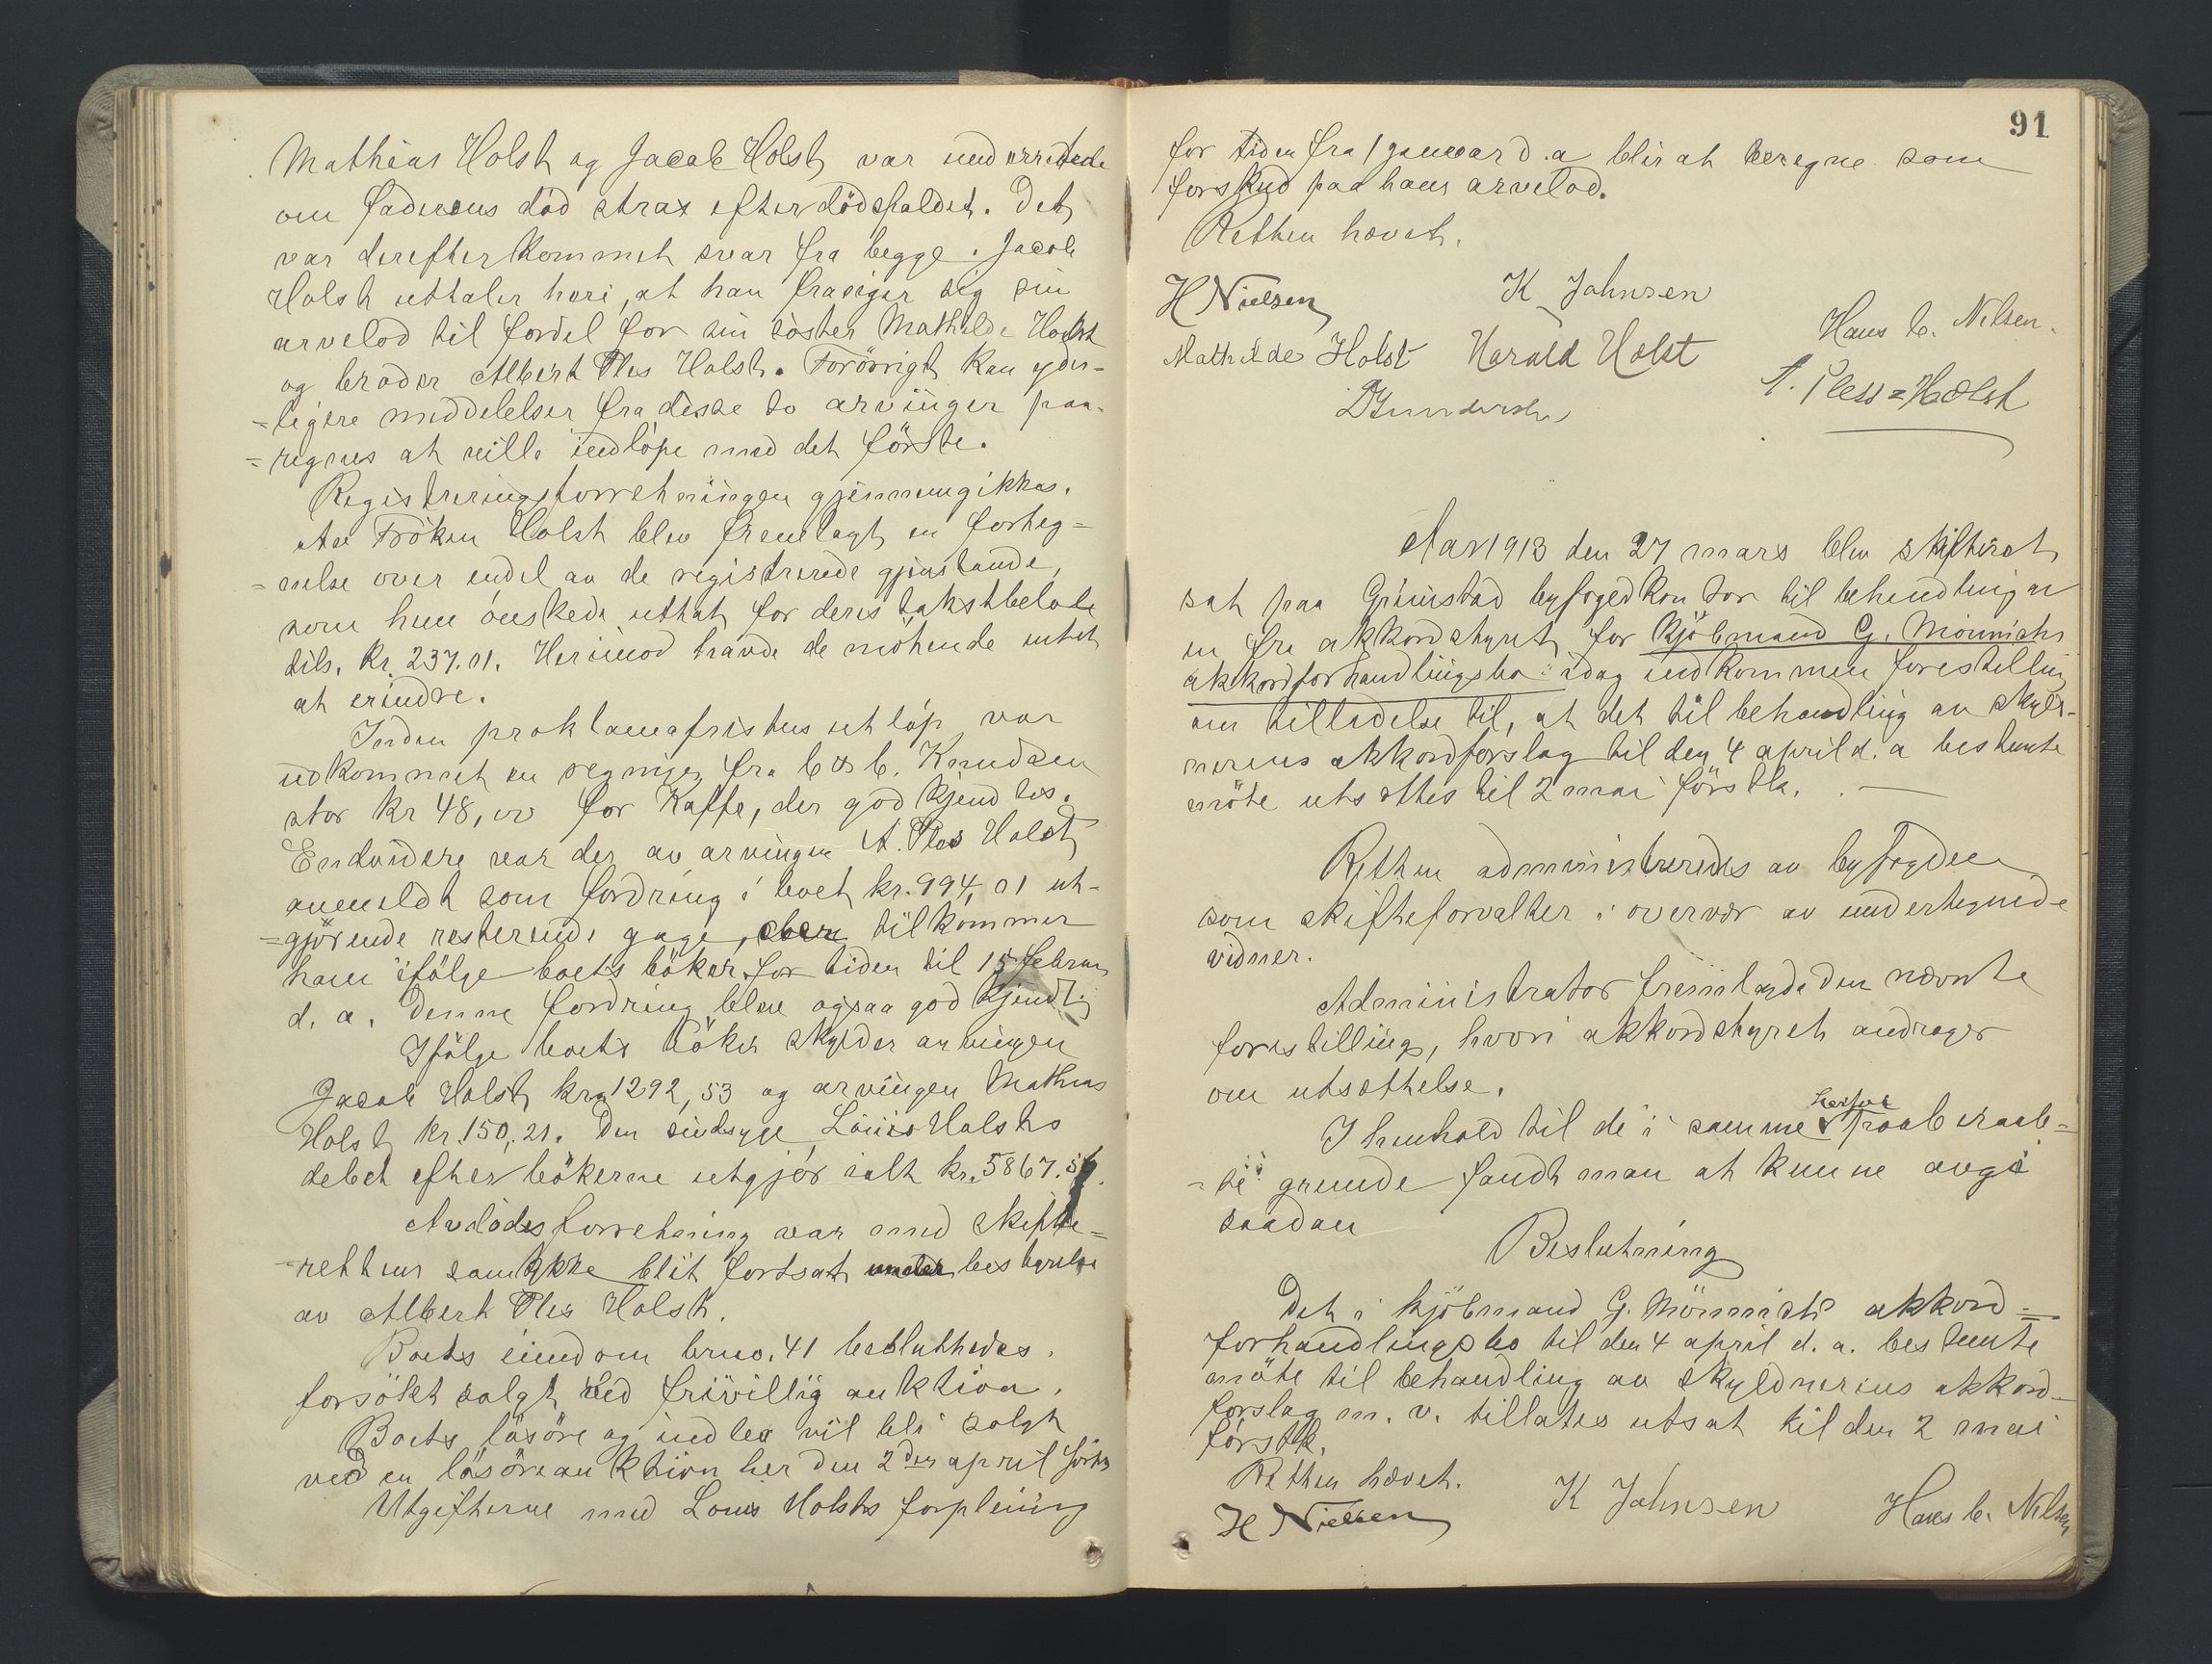 Mathias Holst og Jacob Holst var underrettede
om faderens död strax efter dödsfaldet. Det
var derefter kommet svar fra begge. Jacob
Holst uttaler heri, at han frasiger sig sin
arvelod til fordel for sin söster Mathilde Holst
og broder Albert Ples Holst. Forövrigt kan yder-
=ligere meddelelser fra disse to arvinger paa-
=regnes at ville indlöpe med det förste.
Registreringsforretningen gjennemgikkes.
Av Fröken Holst blev fremlagt en forteg=
=nelse over endel av de registrerede gjenstande,
som hun önskede uttat for deres takstbelöb
tils. kr. 237.01. Herimod havde de mötende intet
at erindre.
Inden proklamafristens utlöp var
indkommet en regning fra C. Knudsen
stor kr 48,00 for Kaffe, der godkjendtes.
Endvidere var der av arvingen A. Ples Holst
anmeldt som fordring i boet kr. 994,01 ut-
=gjörende resterende gage, tilkommer
ham ifölge boets böker for tiden til 15 februar
d. a. Denne fordring blev ogsaa godkjendt.
Ifölge boets böker skylder arvingen
Jacob Holst kr. 1292,53 og arvingen Mathias
Holst kr. 150,21. Den sindsyge Louis Holsts
debet efter bökerne utgjör ialt kr. 5867.
Avdödes forretning var med skifte=
-rettens samtykke blit fortsat under bestyrelse
av Albert Ples Holst.
Boets eiendom brno. 41 besluttedes
forsökt solgt ved frivillig auktion.
Boets lösöre og indbo vil bli solgt
ved en lösöreauktion her den 2den april förstk
Utgifterne med Louis Holsts forpleining
91
for tiden fra 1 januar d. a blir at beregne som
forskud paa hans arvelod.
Retten hævet.
H Nielsen K Johnsen Hans C. Nilsen.
Mathilde Holst Harald Holst A. Pless=Holst
Gundersen
Aar 1913 den 27 mars blev skifteret
sat paa Grimstad byfogedkontor til behandling av
en fra akkordstyret for Kjöbmand G. Mönnichs
akkordforhandlingsbo idag indkommen forestilling
om tilladelse til, at det til behandling av skyld-
nerens akkordforslag til den 4 april d. a bestemte
möte utsættes til 2 mai förstk.
Retten administreredes av byfogden
som skifteforvalter i overvær av undertegnede
vidner.
Administrator fremlagde den nævnte
forestilling, hvori akkordstyret andrager
om utsættelse.
herfor
I henhold til de i samme paaberaab=
=te grunde fandt man at kunne avgi
saadan
Beslutning
Det i kjöbmand G. Mönnichs akkord=
forhandlingsbo til den 4 april d. a. bestemte
möte til behandling av skyldnerens akkord-
forslag m. v. tillates utsat til den 2 mai
förstk.
Retten hævet.
H Nielsen K Johnsen Hans C. Nilsen